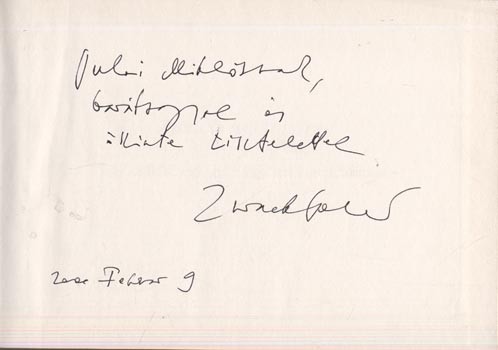 Pulai Miklósnak,
barátsággal és
őszinte tisztelettel
Zwack Péter
2000 Február 9